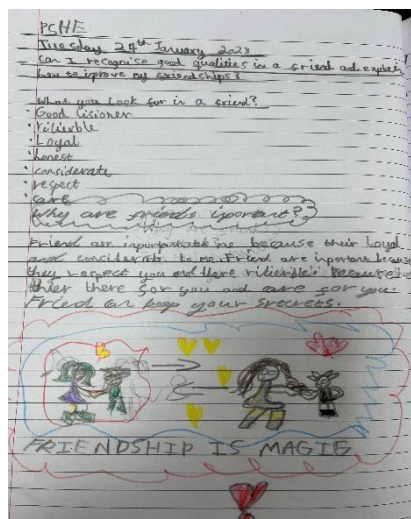 PSHE
Tuesday 24th January 2023
Can I recognise good qualities in a friend ad explain
how to iprove my friendships?
What you look for in a friend?
· Good lisioner
· rilierble
· Loyal
· honest
· considerate
· respect
· care
Why are friends iportant?
Friend are inportant me because their Loyal
and considerate to me. Friend are inportant because
they respect you and there rilierble. Because
thier there for you and care for you.
Friend can keep your srecrets.
FRIENDSHIP IS MAGIG